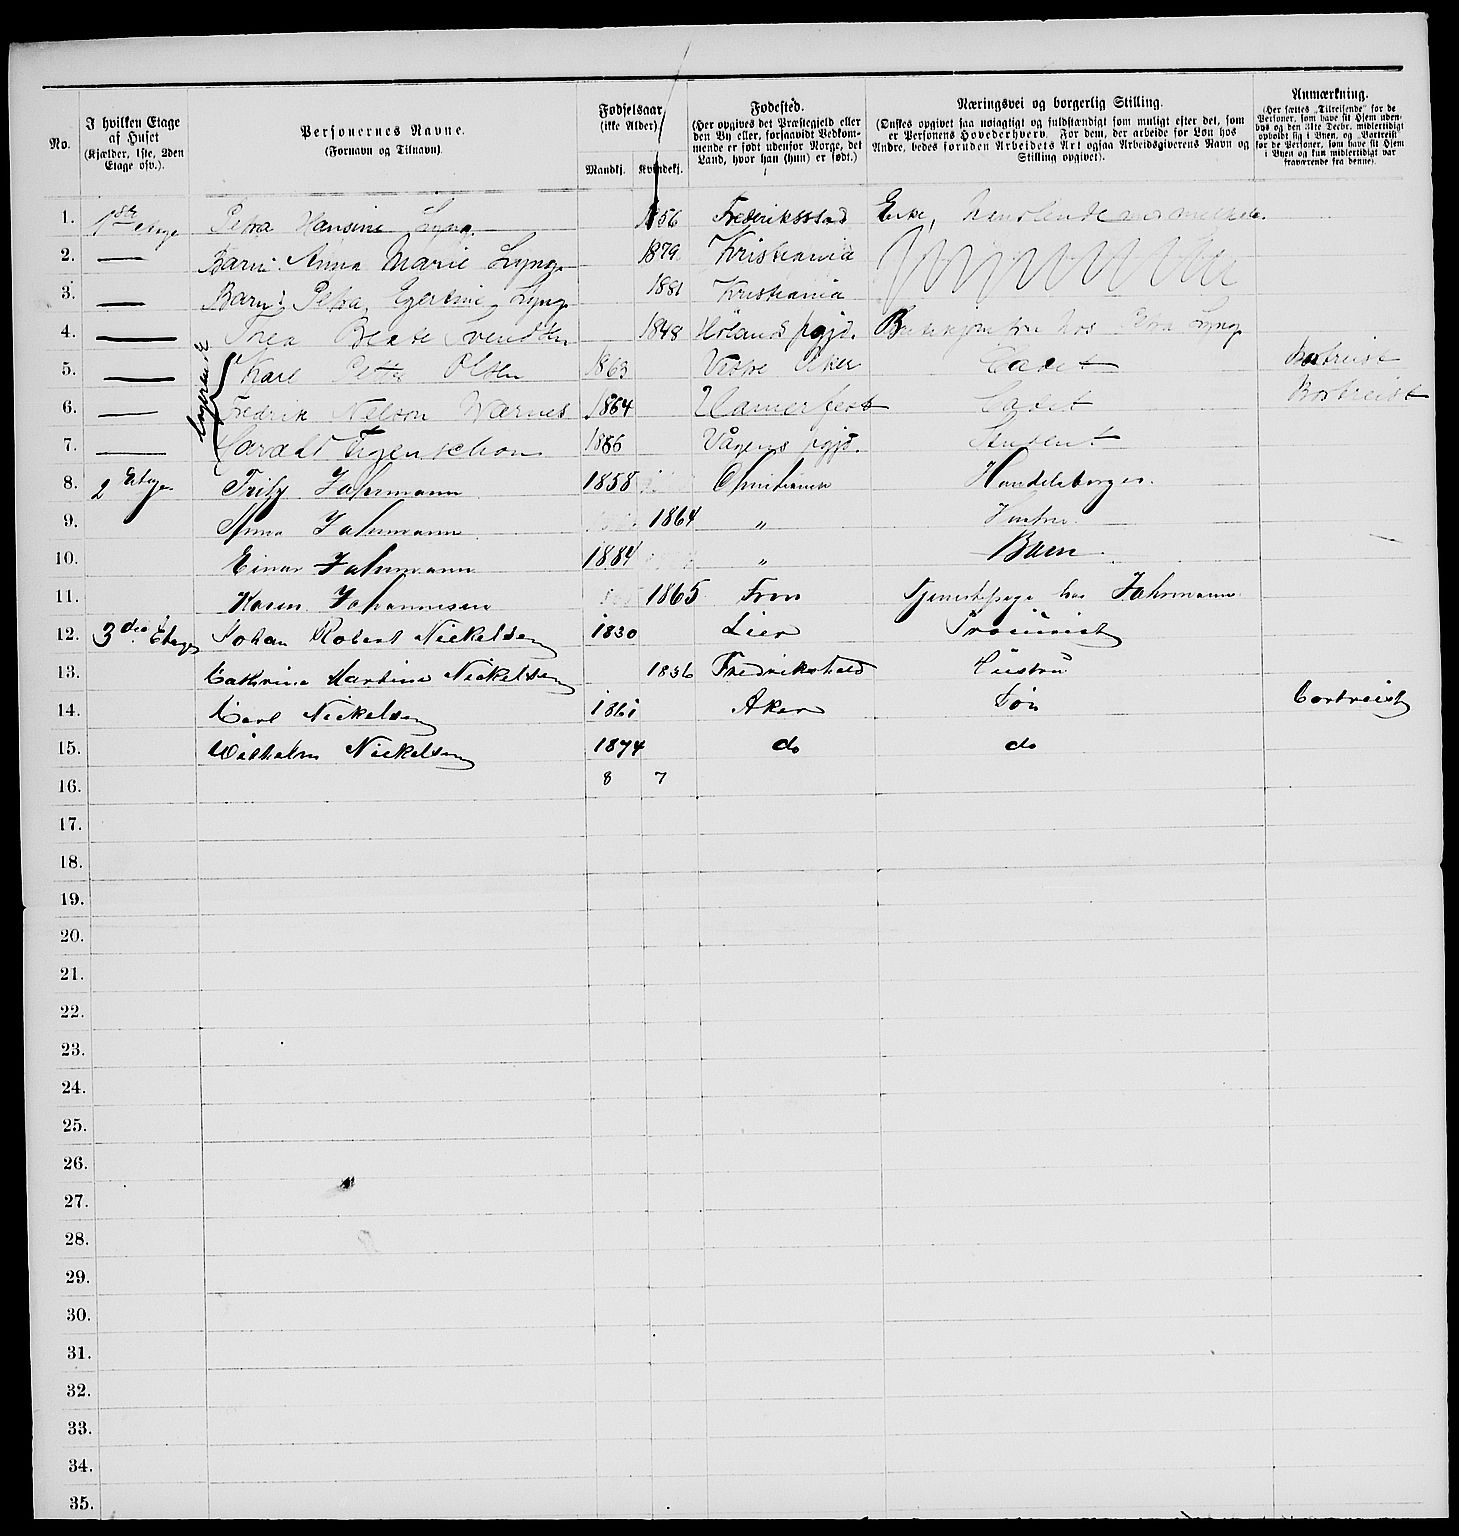 No.
I hvilken Etage af Huset (Kjælder, 1ste, 2den Etage osv.).
Personernes Navne. (Fornavn og Tilnavn).
Fødselsaar (ikke Alder). Mandkj. Kvindekj.
Fødested. (Her opgives det Præstegjeld eller den By eller, forsaavidt Vedkommende er født udenfor Norge, det Land, hvor han (hun) er født.)
Næringsvei og borgerlig Stilling. (Ønskes opgivet saa nøiagtigt og fuldstændigt som muligt efter det, som er Personens Hovederhverv. For dem, der arbeide for Løn hos Andre, bedes foruden Arbeidets Art ogsaa Arbeidsgiverens Navn og Stilling opgivet).
Anmærkning. (Her sættes „Tilreisende" for de Personer, som have sit Hjem udenbys og den 31te Decbr. midlertidigt opholdt sig i Byen, og „Bortreist" for de Personer, som have sit Hjem i Byen og kun midlertidigt var fraværende fra denne).
1. 1ste etage Petra Hansine Lyng. 1856 Frederiksstad Enke,
2. — Barn: Anna Marie Lyng 1879 Kristiania
3. — Barn: Petra Lyng 1881 Kristiania
4. — Thea Beate Svendsen 1848 Hølands pgjd. hos Petra Lyng
5. — Logerende Karl Petter Olsen 1863 Vestre Aker Cadet Bortreist
6. — Fredrik Nelson Warnes 1864 Hamerfest Cadet Bortreist
7. — Harald Tigenschou 1866 Vågens pgjd. Student
8. 2 Etage Fritz Jahrmann 1858 Christiania Handelsborger.
9. Anna Jahrmann 1864 „ Hustru
10. Einar Jahrmann 1884 „ Barn
11. Karen Johannesen 1865 Fron Tjenestepige hos Jahrmann
12. 3die Etage Johan Robert Nickelsen 1830 Lier
13. Cathrine Martine Nickelsen 1836 Fredrikshald Hustru
14. Carl Nickelsen 1861 Aker Søn bortreist
15. Wilhelm Nickelsen 1874 do do
16. 8 7
17.
18.
19.
20.
21.
22.
23.
24.
25.
26.
27.
28.
29.
30.
31.
32.
33.
34.
35.